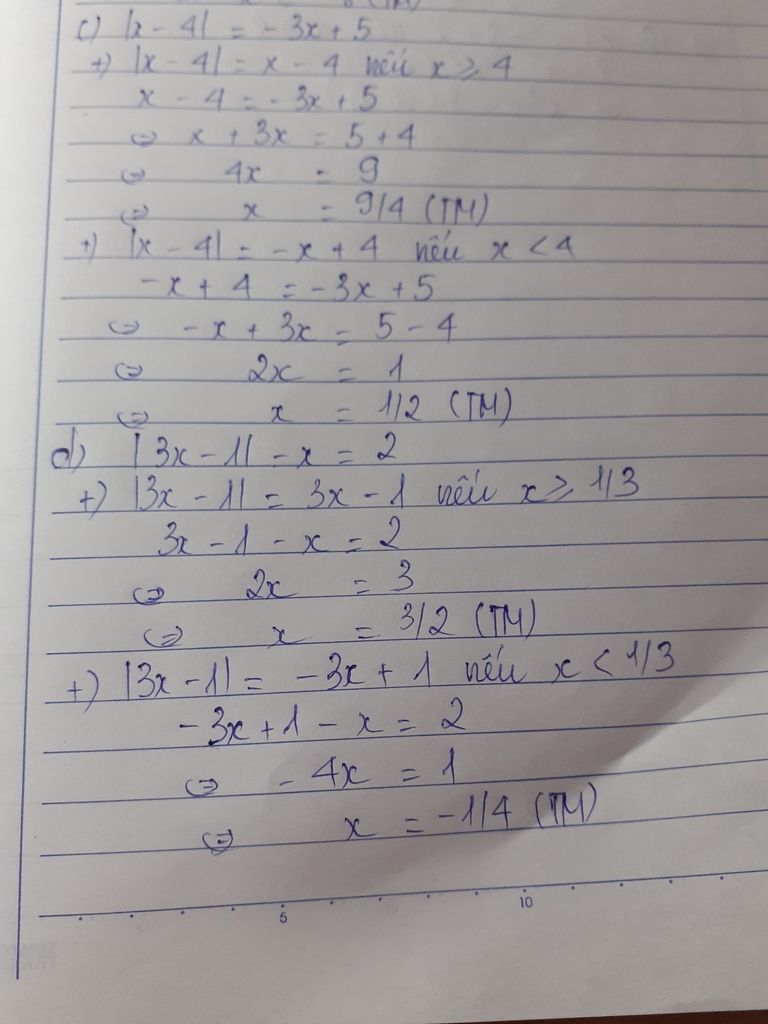 c) |x - 4| = - 3x + 5
+) |x - 4| = x - 4 nếu x ⩾ 4
x - 4 = - 3x + 5
⇔ x + 3x = 5 + 4
⇔ 4x = 9
⇔ x = 9/4 (TM)
+) |x - 4| = - x + 4 nếu x < 4
- x + 4 = - 3x + 5
⇔ - x + 3x = 5 - 4
⇔ 2x = 1
⇔ x = 1/2 (TM)
d) |3x - 1| - x = 2
+) |3x - 1| = 3x - 1 nếu x ⩾ 1/3
3x - 1 - x = 2
⇔ 2x = 3
⇔ x = 3/2 (TM)
+) |3x - 1| = - 3x + 1 nếu x < 1/3
- 3x + 1 - x = 2
⇔ - 4x = 1
⇔ x = - 1/4 (TM)
5 10